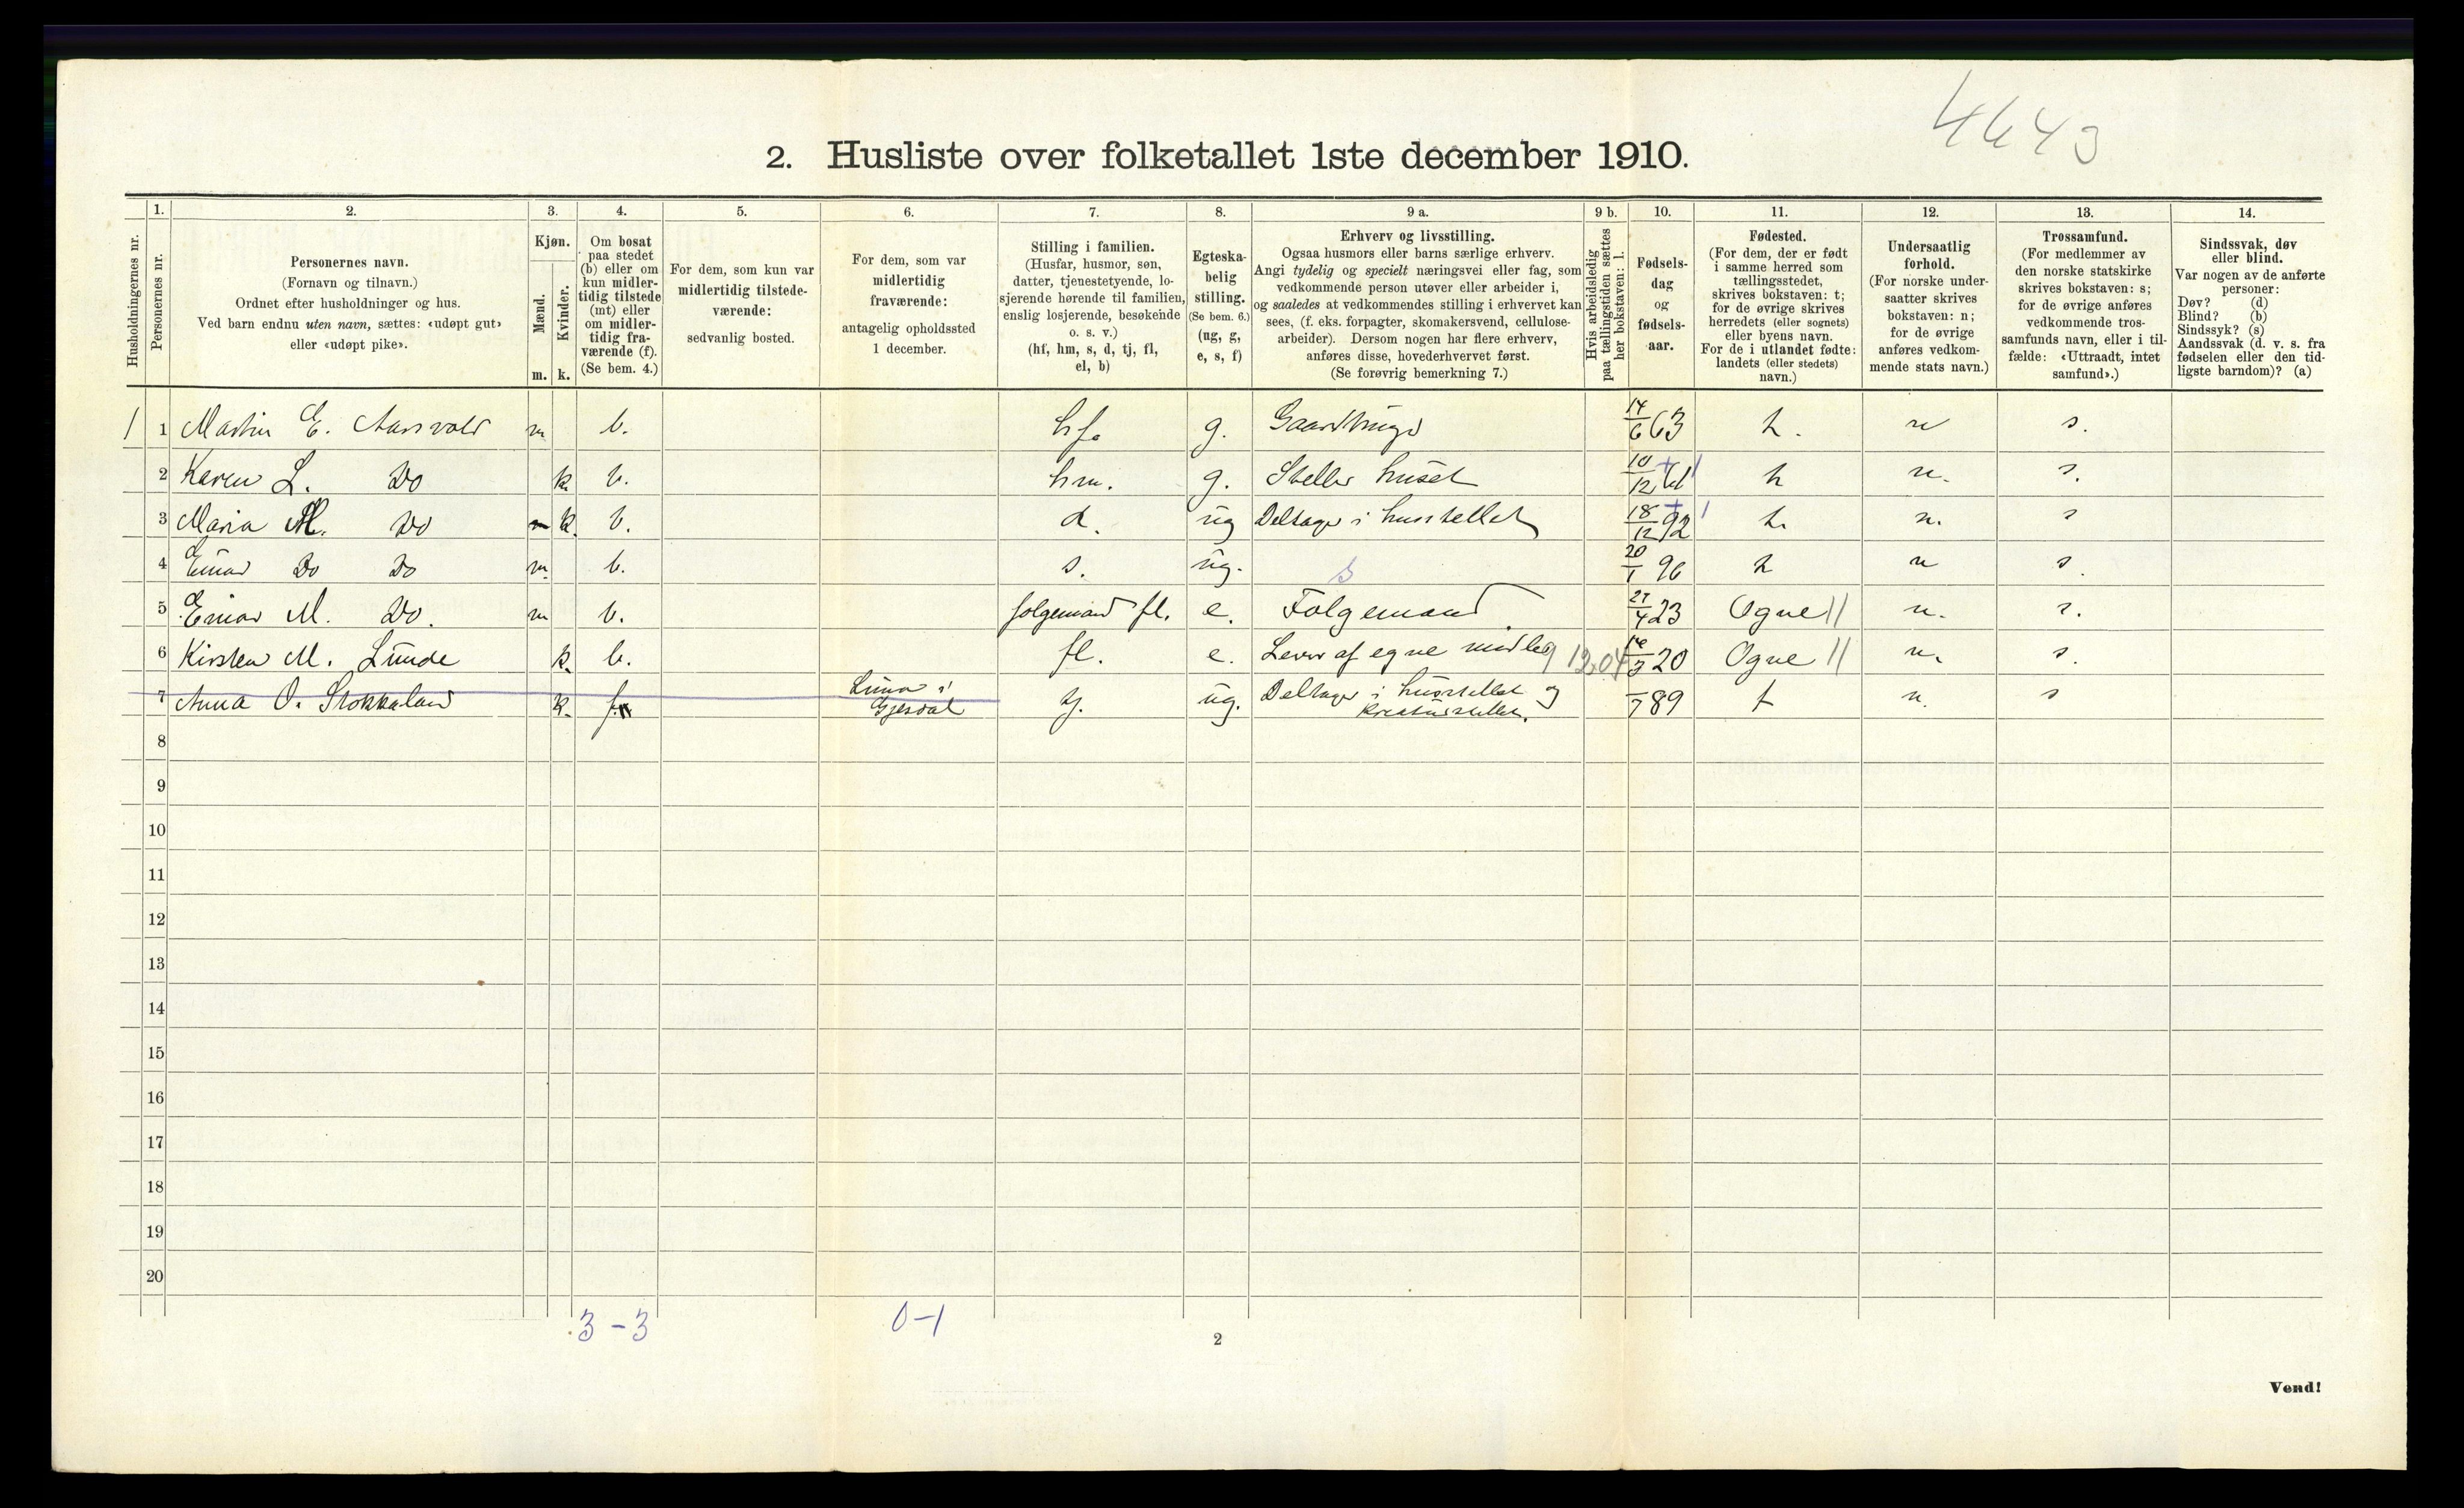 4643
2. Husliste over folketallet 1ste december 1910.
Husholdningernes nr.
1.
Personernes nr.
2.
Personernes navn.
(Fornavn og tilnavn.)
Ordnet efter husholdninger og hus.
Ved barn endnu uten navn, sættes: «udøpt gut»
eller «udøpt pike».
3.
Kjøn.
Mænd.
Kvinder.
m. k.
4.
Om bosat
paa stedet
(b) eller om
kun midler-
tidig tilstede
(mt) eller
om midler-
tidig fra-
værende (f).
(Se bem. 4.)
5.
For dem, som kun var
midlertidig tilstede-
værende:
sedvanlig bosted.
6.
For dem, som var
midlertidig
fraværende:
antagelig opholdssted
1 december.
7.
Stilling i familien.
(Husfar, husmor, søn,
datter, tjenestetyende, lo-
sjerende hørende til familien,
enslig losjerende, besøkende
o. s. v.)
(hf, hm, s, d, tj, fl,
el, b)
8.
Egteska-
belig
stilling.
(Se bem. 6.)
(ug, g,
e, s, f)
9 a.
Erhverv og livsstilling.
Ogsaa husmors eller barns særlige erhverv.
Angi tydelig og specielt næringsvei eller fag, som
vedkommende person utøver eller arbeider i,
og saaledes at vedkommendes stilling i erhvervet kan
sees, (f. eks. forpagter, skomakersvend, cellulose-
arbeider). Dersom nogen har flere erhverv,
anføres disse, hovederhvervet først.
(Se forøvrig bemerkning 7.)
9 b.
Hvis arbeidsledig
paa tællingstiden sættes
her bokstaven: l.
10.
Fødsels-
dag
og
fødsels-
aar.
11.
Fødested.
(For dem, der er født
i samme herred som
tællingsstedet,
skrives bokstaven: t;
for de øvrige skrives
herredets (eller sognets)
eller byens navn.
For de i utlandet fødte:
landets (eller stedets)
navn.)
12.
Undersaatlig
forhold.
(For norske under-
saatter skrives
bokstaven: n;
for de øvrige
anføres vedkom-
mende stats navn.)
13.
Trossamfund.
(For medlemmer av
den norske statskirke
skrives bokstaven: s;
for de øvrige anføres
vedkommende tros-
samfunds navn, eller i til-
fælde: «Uttraadt, intet
samfund».)
14.
Sindssvak, døv
eller blind.
Var nogen av de anførte
personer:
Døv? (d)
Blind? (b)
Sindssyk? (s)
Aandssvak (d. v. s. fra
fødselen eller den tid-
ligste barndom)? (a)
1 1 Martin E. m b. hf. g. 14/6 63 n s.
2 Karen L. Do k. b. hm. g. Steller huset 10/12 n. s.
3 Maria M. Do k. b. d. ug Deltager i husstellet 18/12 92 n. s
4 Einar Do Do m. b. s. ug. 20/1 96 n s.
5 Einar M. Do. m b. folgemand fl. e. Folgemand 27/4 23 Ogne n. s.
6 Kirsten M. Lunde k. b. fl. e. Lever af egne midler 20 Ogne n. s.
7 Anna O. Stokkeland k. f Lima i Gjesdal tj. ug. Deltager i husstellet og kreaturstellet. /7 89 t n. s
8
9
10
11
12
13
14
15
16
17
18
19
20
3-3 0-1
2
Vend!